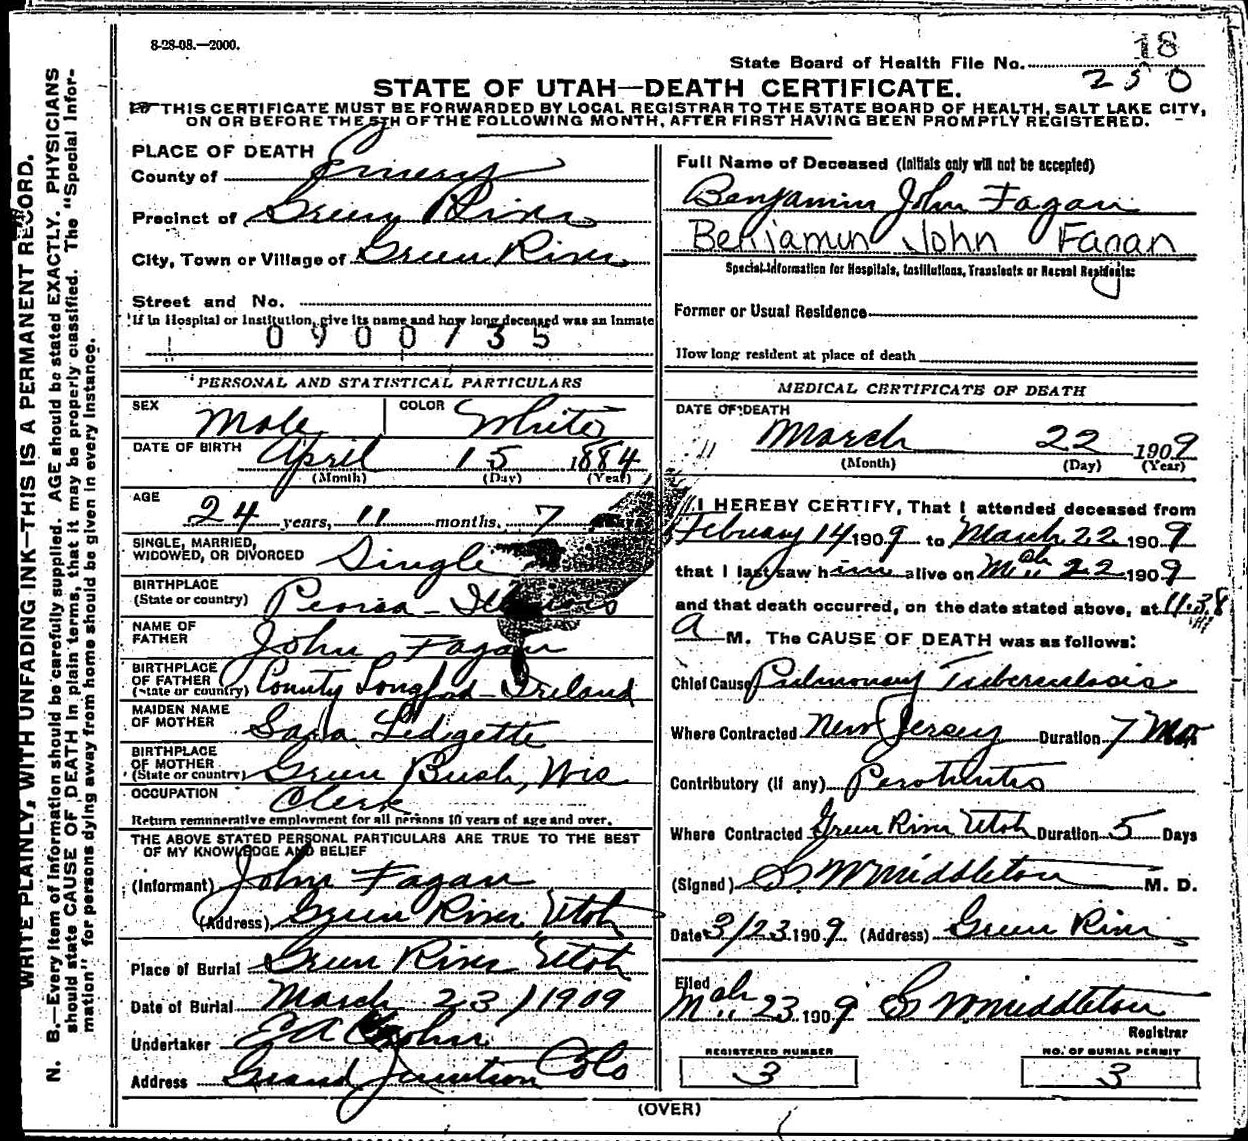 8-28-08.—2000.
18
State Board of Health File No. 250
STATE OF UTAH—DEATH CERTIFICATE.
THIS CERTIFICATE MUST BE FORWARDED BY LOCAL REGISTRAR TO THE STATE BOARD OF HEALTH, SALT LAKE CITY,
ON OR BEFORE THE 5TH OF THE FOLLOWING MONTH, AFTER FIRST HAVING BEEN PROMPTLY REGISTERED.
WRITE PLAINLY, WITH UNFADING INK—THIS IS A PERMANENT RECORD.
N. B.—Every item of information should be carefully supplied. AGE should be stated EXACTLY. PHYSICIANS
should state CAUSE OF DEATH in plain terms, that it may be properly classified. The "Special Infor-
mation" for persons dying away from home should be given in every instance.
PLACE OF DEATH
County of Emery
Precinct of Green River
City, Town or Village of Green River
Street and No.
If in Hospital or Institution, give its name and how long deceased was an Inmate
0900735
PERSONAL AND STATISTICAL PARTICULARS
SEX Male COLOR White
DATE OF BIRTH April 15 1884
(Month) (Day) (Year)
AGE
24 years, 11 months. 7
SINGLE, MARRIED,
WIDOWED, OR DIVORCED Single
BIRTHPLACE
(State or country) Peoria - Illinois
NAME OF
FATHER John Fagan
BIRTHPLACE
OF FATHER
(State or country) County Longford - Ireland
MAIDEN NAME
OF MOTHER Sara Ledgette
BIRTHPLACE
OF MOTHER
(State or country) Green Bush, Wis
OCCUPATION Clerk
Return remunerative employment for all persons 10 years of age and over.
THE ABOVE STATED PERSONAL PARTICULARS ARE TRUE TO THE BEST
OF MY KNOWLEDGE AND BELIEF
(Informant) John Fagan
(Address) Green River, Utah
Place of Burial Green River Utah
Date of Burial March 23, 1909
Undertaker E A
Address Grand Junction Colo
Full Name of Deceased (Initials only will not be accepted)
Benjamin John Fagan
Benjamin John Fagan
Special Information for Hospitals, Institutions, Transients or Recent Residents:
Former or Usual Residence
How long resident at place of death
MEDICAL CERTIFICATE OF DEATH
DATE OF DEATH
March 22 1909
(Month) (Day) (Year)
I HEREBY CERTIFY, That I attended deceased from
February 14 1909 to March 22 1909
that I last saw him alive on Mch 22 1909
and that death occurred, on the date stated above, at 11.38
A M. The CAUSE OF DEATH was as follows:
Chief Cause Pulmonary Tuberculosis
Where Contracted New Jersey Duration 7 Mos
Contributory (if any) Peroteutis
Where Contracted Green River Utah Duration 5 Days
(Signed) S W Middleton M. D.
Date 3/23 1909. (Address) Green River
Filed
Mch 23 1909 S W Middleton
Registrar
REGISTERED NUMBER
3
NO. OF BURIAL PERMIT
3
(OVER)